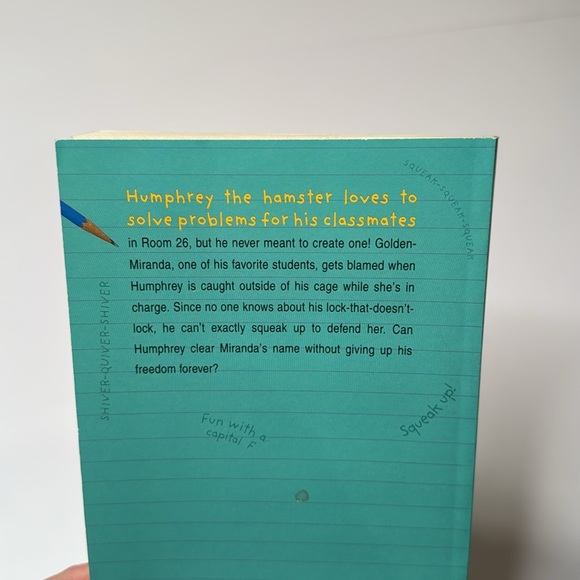 SQUEAK-SQUEAK-SQUEAK
Humphrey the hamster loves to
solve problems for his classmates
in Room 26, but he never meant to create one! Golden-
Miranda, one of his favorite students, gets blamed when
Humphrey is caught outside of his cage while she's in
charge. Since no one knows about his lock-that-doesn't-
lock, he can't exactly squeak up to defend her. Can
Humphrey clear Miranda's name without giving up his
freedom forever?
SHIVER-QUIVER-SHIVER
Fun with a
capital F
Squeak up!